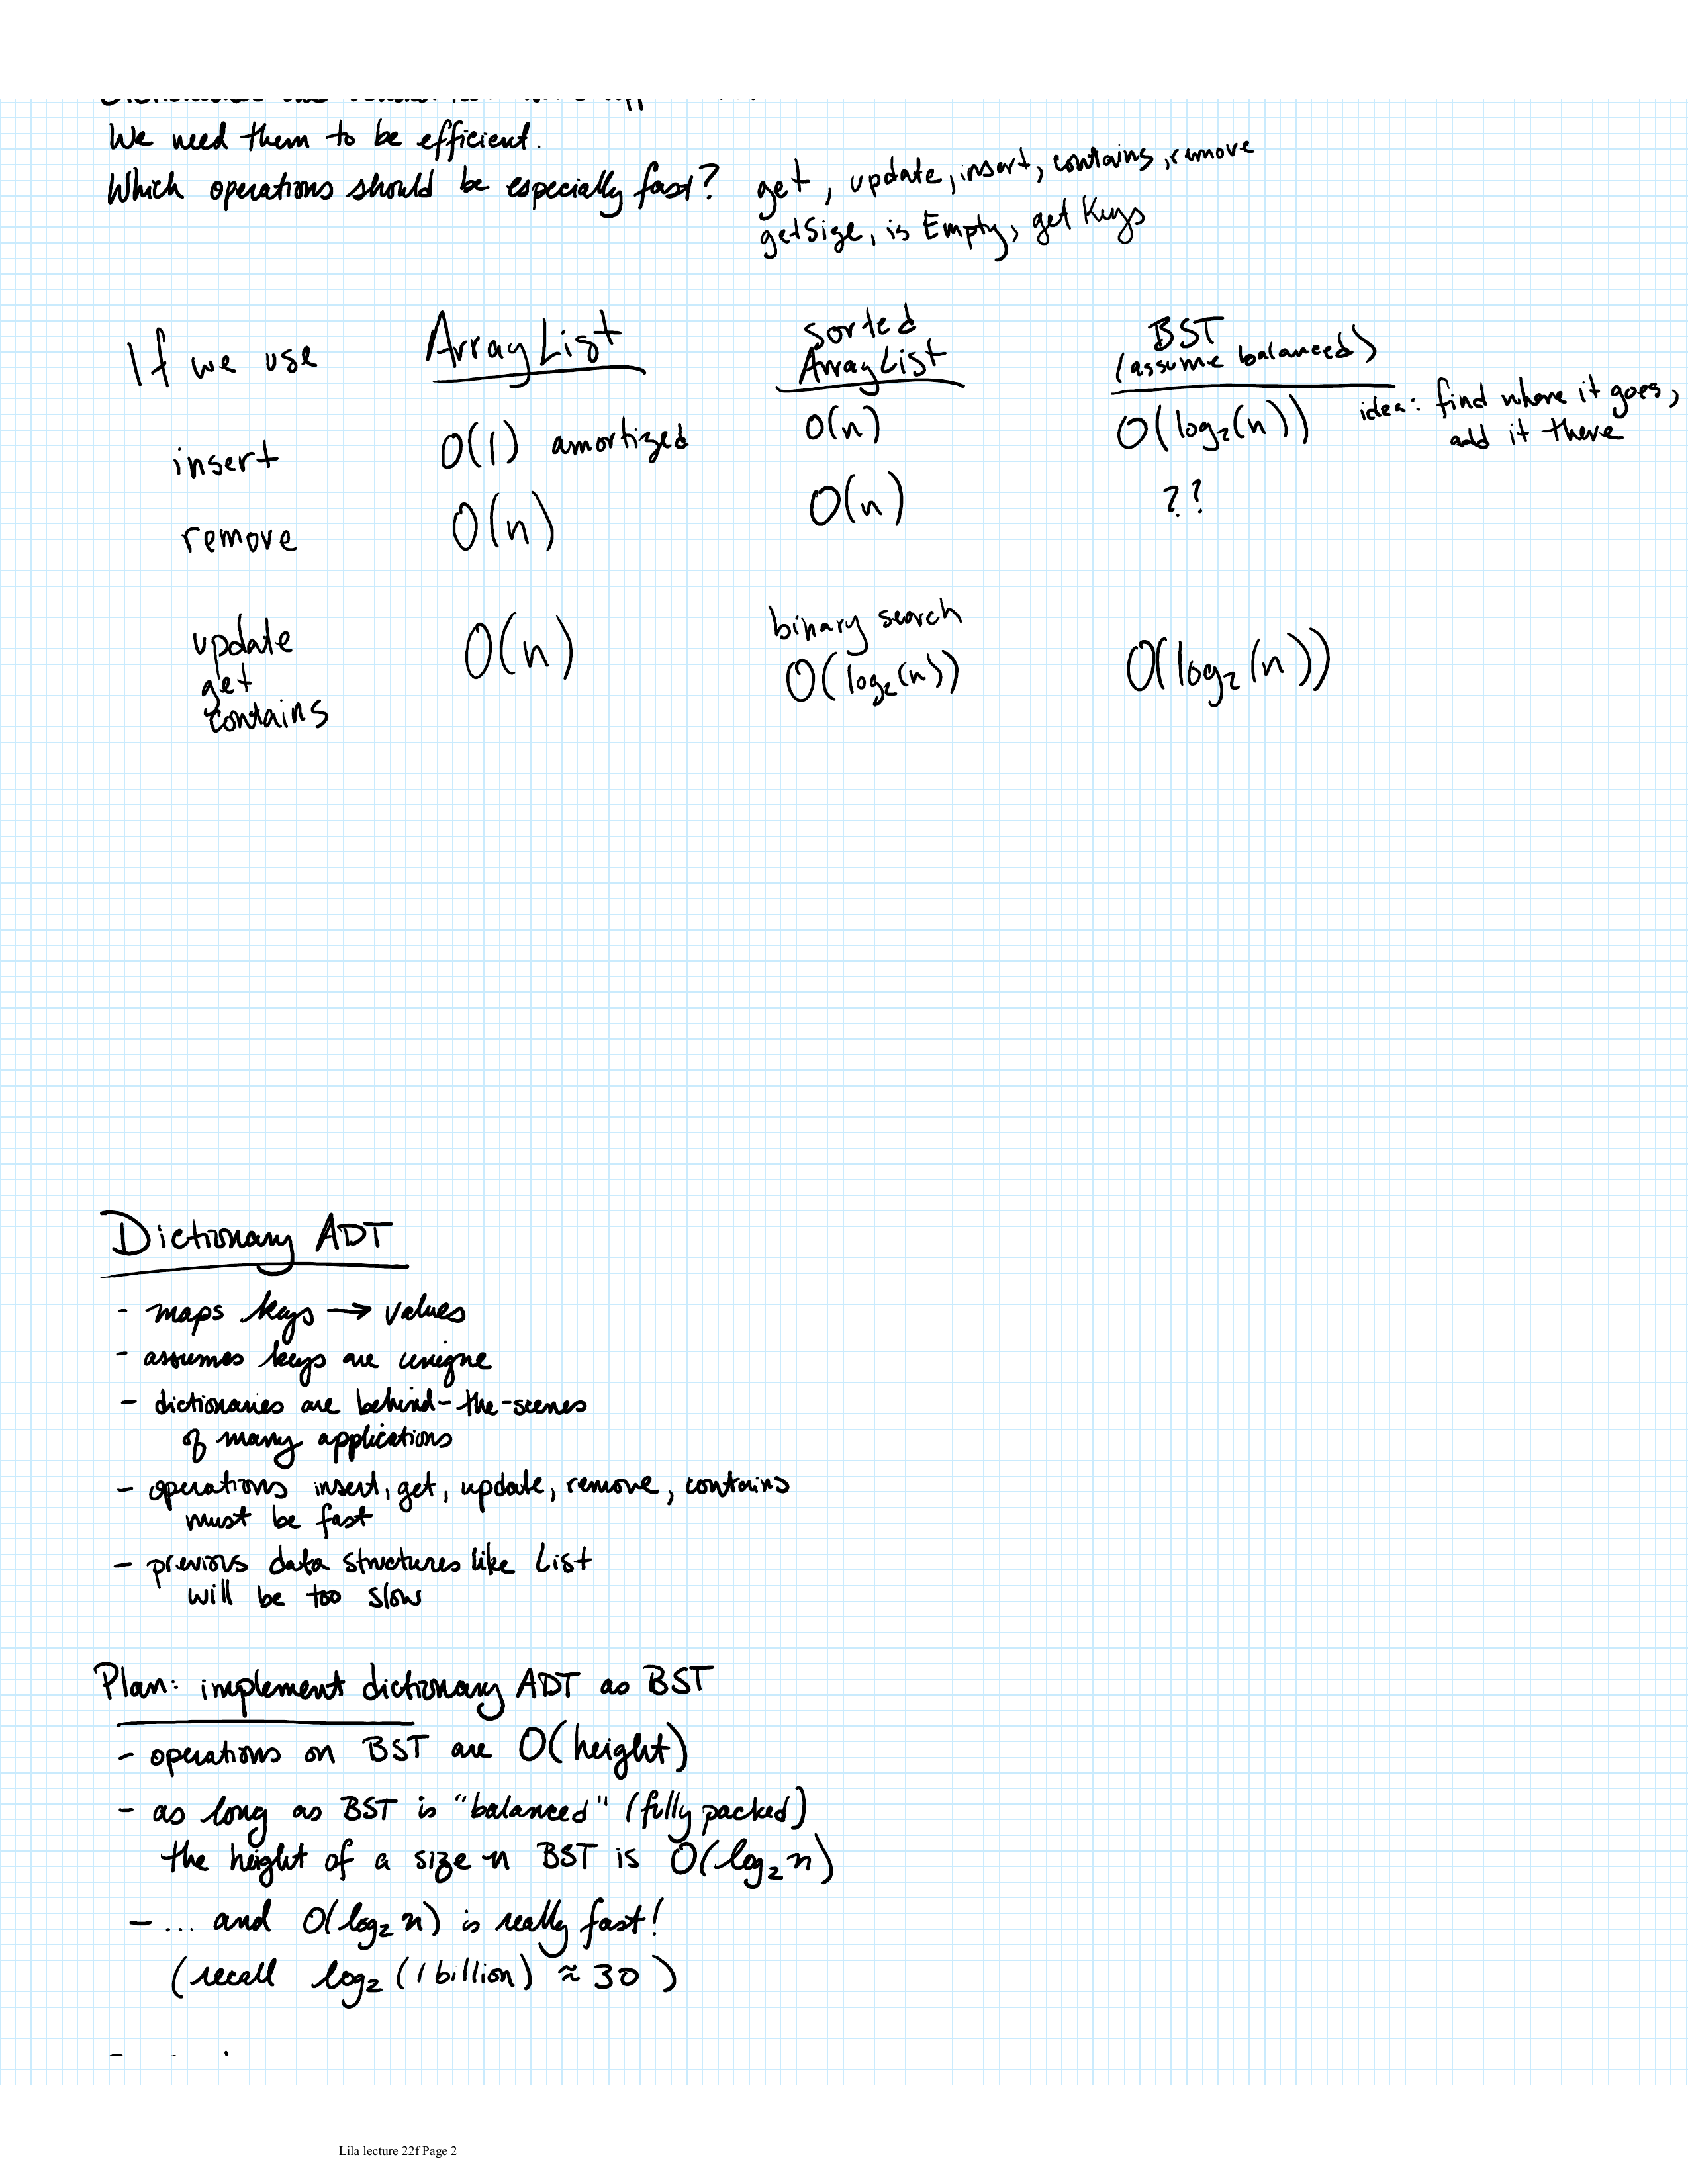 We need them to be efficient.
Which operations should be especially fast? get, update, insert, contains, remove
getSize, isEmpty, getKeys
If we use ArrayList Sorted ArrayList BST (assume balanced)
insert O(1) amortized O(n) O(log₂(n)) idea: find where it goes,
add it there
remove O(n) O(n) ??
update get contains O(n) binary search O(log₂(n)) O(log₂(n))
Dictionary ADT
- maps keys → values
- assumes keys are unique
- dictionaries are behind-the-scenes
of many applications
- operations insert, get, update, remove, contains
must be fast
- previous data structures like List
will be too slow
Plan: implement dictionary ADT as BST
- operations on BST are O(height)
- as long as BST is "balanced" (fully packed)
the height of a size n BST is O(log₂ n)
- ... and O(log₂ n) is really fast!
(recall log₂ (1 billion) ≈ 30)
Lila lecture 22f Page 2